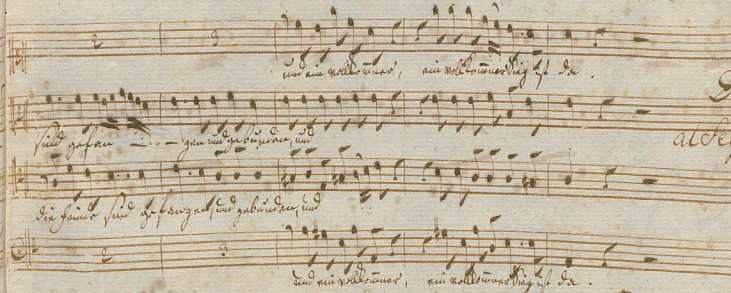 2 3
und ein vollkommner, ein vollkommner Sieg ist da.
sind gefan - - - gen und gebunden, und
al Seg
die Feinde sind gefangen, und gebunden, und
2 3
und ein vollkommner, ein vollkommner Sieg ist da.